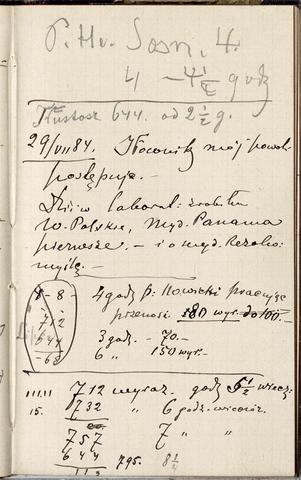 P. Hr. Sosn. 4.
4 — 4½ godz
Kustosz 644. od 2½ g.
29/VII 84. Słownik mój powoli
postępuje. —
Dziś w laborat. zrobiłem
w. Polskie, myd. Panama
pierwsze. — i o myd. Rezolw.
myślę. —
8 - 8 -
712
644
- 68
4 godz p. Nowicki pracując
przenosi 580 wyr. do 100.
3 godz. - 70. -
6 " 150 wyr. -
III.II 712 wyraz. godz 5½ wiecz.
15. 732 " 6 godz. wieczór.
757 7 " "
644 795. 8½
113